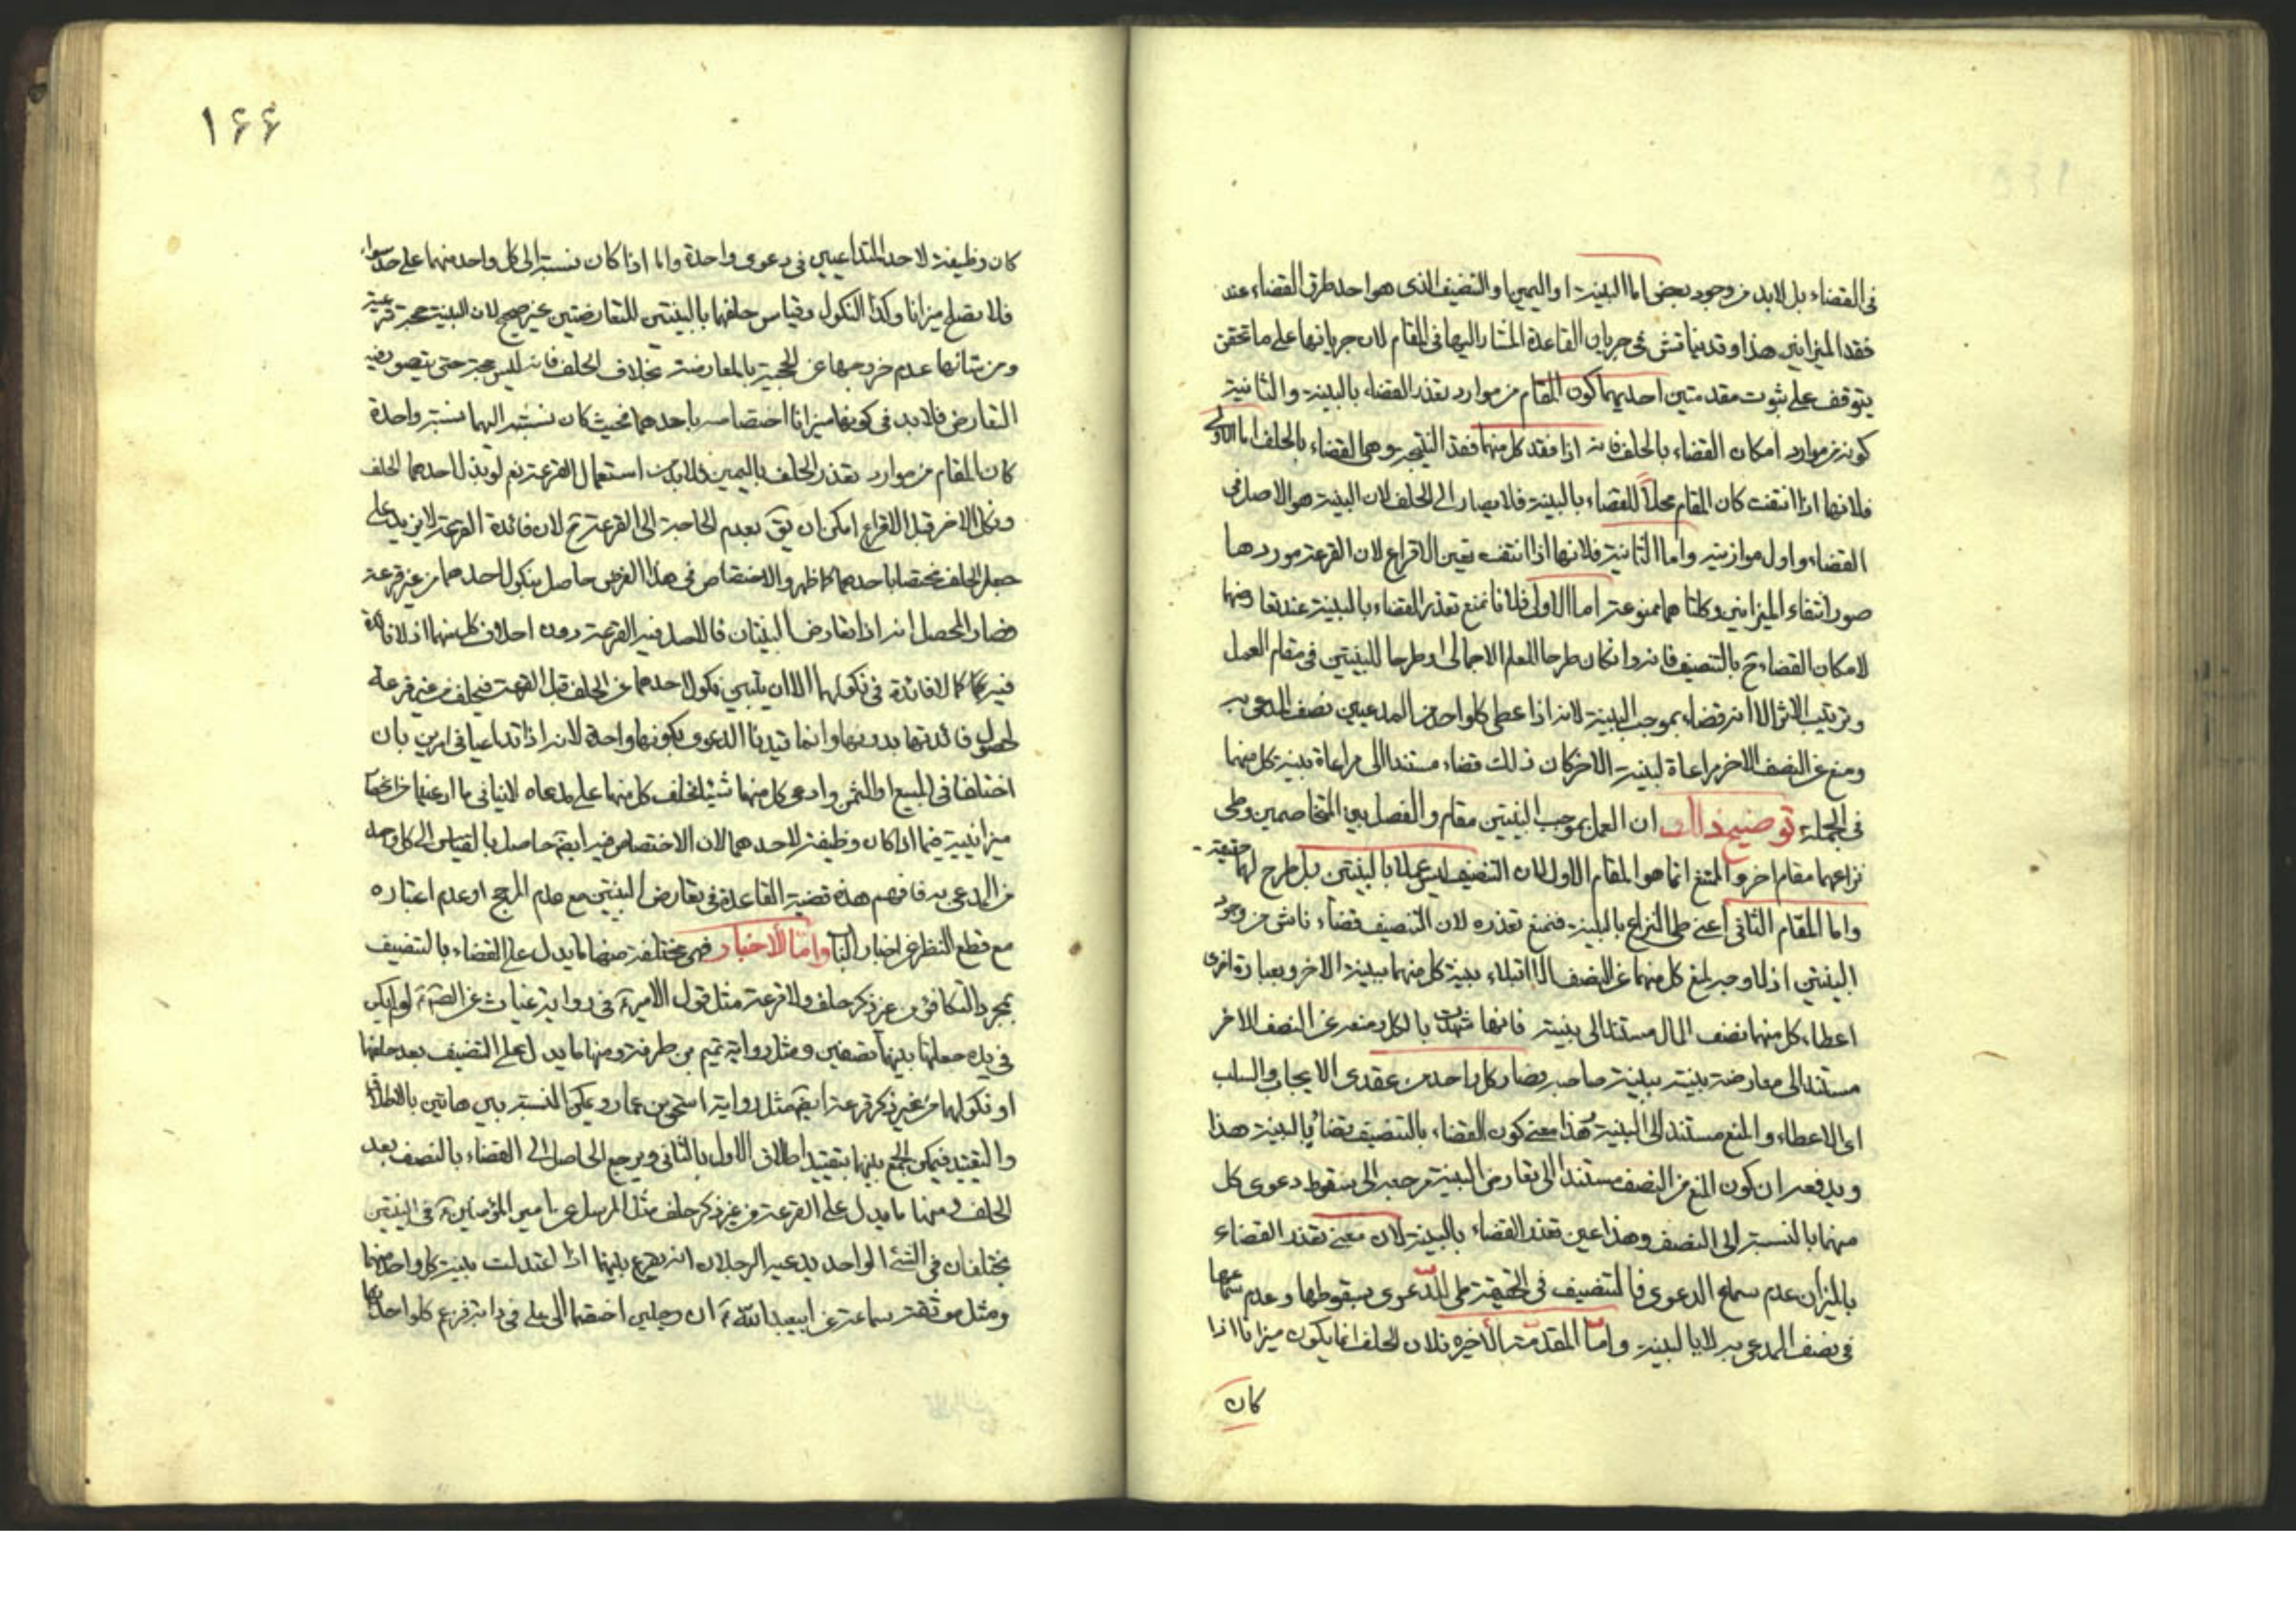 في القضاء بل لابد من وجود بعض اما البينة او اليمين او التنصيف الذى هو احد طرق القضاء عند
فقد الميزانين هذا وقد يناقش فى جريان القاعدة المشار اليها فى المقام لان جريانها على ما تحقق
يتوقف على ثبوت مقدمتين احديهما كون المقام من موارد تعذر القضاء بالبينة والثانية
كونه من موارد امكان القضاء بالحلف فانه اذا فقد كل منهما فقد النتيجة وهى القضاء بالحلف اما الاولى
فلانها اذا انتفت كان المقام محلا للقضاء بالبينة فلا يصار الى الحلف لان البينة هو الاصل فى
القضاء واول موازينه واما الثانية فلانها اذا انتفت تعين الاقراع لان القرعة موردها
صورة انتفاء الميزانين وكلتا هما ممنوعة اما الاولى فلانا نمنع تعذر القضاء بالبينة عند تعارضهما
لامكان القضاء ح بالتنصيف فانه وان كان طرحا للعلم الاجمالى او طرحا للبينتين فى مقام العمل
وترتيب الاثر الا انه قضاء بموجب البينة لانه اذا اعطى كلواحد من المدعيين نصف المدعى به
ومنع عن النصف الاخر مراعاة لبينة الاخر كان ذلك قضاء مستندا الى مراعاة بينة كل منهما
فى الجملة توضيح ذالك ان العمل بموجب البينتين مقام والفصل بين المتخاصمين وطى
نزاعهما مقام اخر والممتنع انما هو المقام الاول لان التنصيف ليس عملا بالبينتين بل طرح لهما حقيقة
واما المقام الثانى اعنى طى النزاع بالبينة فنمنع تعذره لان التنصيف قضاء ناش من وجود
البينتين اذ لا وجه لمنع كل منهما عن النصف الا ابتلاء بينة كل منهما ببينة الاخر وبعبارة اخرى
اعطاء كل منهما نصف المال مستند الى بينته فانها شهدت بالكل ومنعه عن النصف الاخر
مستند الى معارضة بينته ببينة صاحبه فصار كل واحد من عقدى الايجاب والسلب
اى الاعطاء والمنع مستندا الى البينة هذا معنى كون القضاء بالتنصيف قضاء بالبينة هذا
ويدفعه ان كون المنع من النصف مستندا الى تعارض البينة مرجعه الى سقوط دعوى كل
منهما بالنسبة الى النصف وهذا عين تعذر القضاء بالبينة لان معنى تعذر القضاء
بالميزان عدم سماع الدعوى فالتنصيف فى الحقيقة طى للدعوى بسقوطها وعدم سماعها
فى نصف المدعى به لا بالبينة واما المقدمة الاخيرة فلان الحلف انما يكون ميزانا اذا
كان
١۶۶
كان وظيفة لاحد المتداعيين فى دعوى واحدة واما اذا كان نسبته الى كل واحد منهما على حد سواء
فلا يصلح ميزانا وكذا النكول وقياس حلفهما بالبينتين المتعارضتين غير صحيح لان البينة حجة شرعية
ومن شانها عدم خروجها عن الحجية بالمعارضة بخلاف الحلف فانه ليس بحجة حتى يتصور فيه
التعارض فلابد فى كونها ميزانا اختصاصه باحدهما فحيث كان نسبته اليهما نسبة واحدة
كان المقام من موارد تعذر الحلف باليمين فلابد من استعمال القرعة نعم لو بذل احدهما الحلف
ونكل الاخر قبل الاقراع امكن ان يق بعدم الحاجة الى القرعة ح لان فائدة القرعة لا يزيد على
جعل الحلف مختصا باحدهما كما ظهر والاختصاص فى هذا الفرض حاصل بنكول احدهما من غير قرعة
فصار المحصل انه اذا تعارض البينتان فالاصل فيه القرعة دون احلاف كل منهما اذ لا فائدة
فيه كما لا فائدة فى نكولهما الا ان يتبين نكول احدهما عن الحلف قبل القرعة فيحلف من غير قرعة
لحصول فائدتها بدونها وانما قيدنا الدعوى بكونها واحدة لانه اذا تداعيا فى امرين بان
اختلفا فى المبيع او الثمن وادعى كل منهما شيئا فحلف كل منهما على مدعاه لا ينافى ما ادعينا من انحصار
ميزانيته فيما اذا كان وظيفة لاحدهما لان الاختصاص فيه ايضا حاصل بالقياس الى كل واحد
من المدعى به فافهم هذه قضية القاعدة فى تعارض البينتين مع عدم المرجح او عدم اعتباره
مع قطع النظر عن اخبار الباب واما الاخبار فهى مختلفة منها ما يدل على القضاء بالتنصيف
بمجرد التكافؤ من غير ذكر حلف ولا قرعة مثل قول الامير ع فى رواية غياث عن الصادق ع لو لم يكن
فى يده جعلتها بينهما نصفين ومثل رواية تميم بن طرفة ومنها ما يدل على التنصيف بعد حلفهما
او نكولهما من غير ذكر قرعة ايضا مثل رواية اسحق بن عمار ويمكن النسبة بين هاتين بالاطلاق
والتقييد فيمكن الجمع بينهما بتقييد اطلاق الاول بالثانى ويرجع الحاصل الى القضاء بالنصف بعد
الحلف ومنها ما يدل على القرعة من غير ذكر حلف مثل المرسل عن امير المؤمنين ع فى البينتين
يختلفان فى الشئ الواحد يدعيه الرجلان انه يقرع بينهما اذا اعتدلت بينة كل واحد منهما
ومثل موثقة سماعة عن ابيعبد الله ع ان رجلين اختصما الى على فى دابة فزعم كلواحد منهما